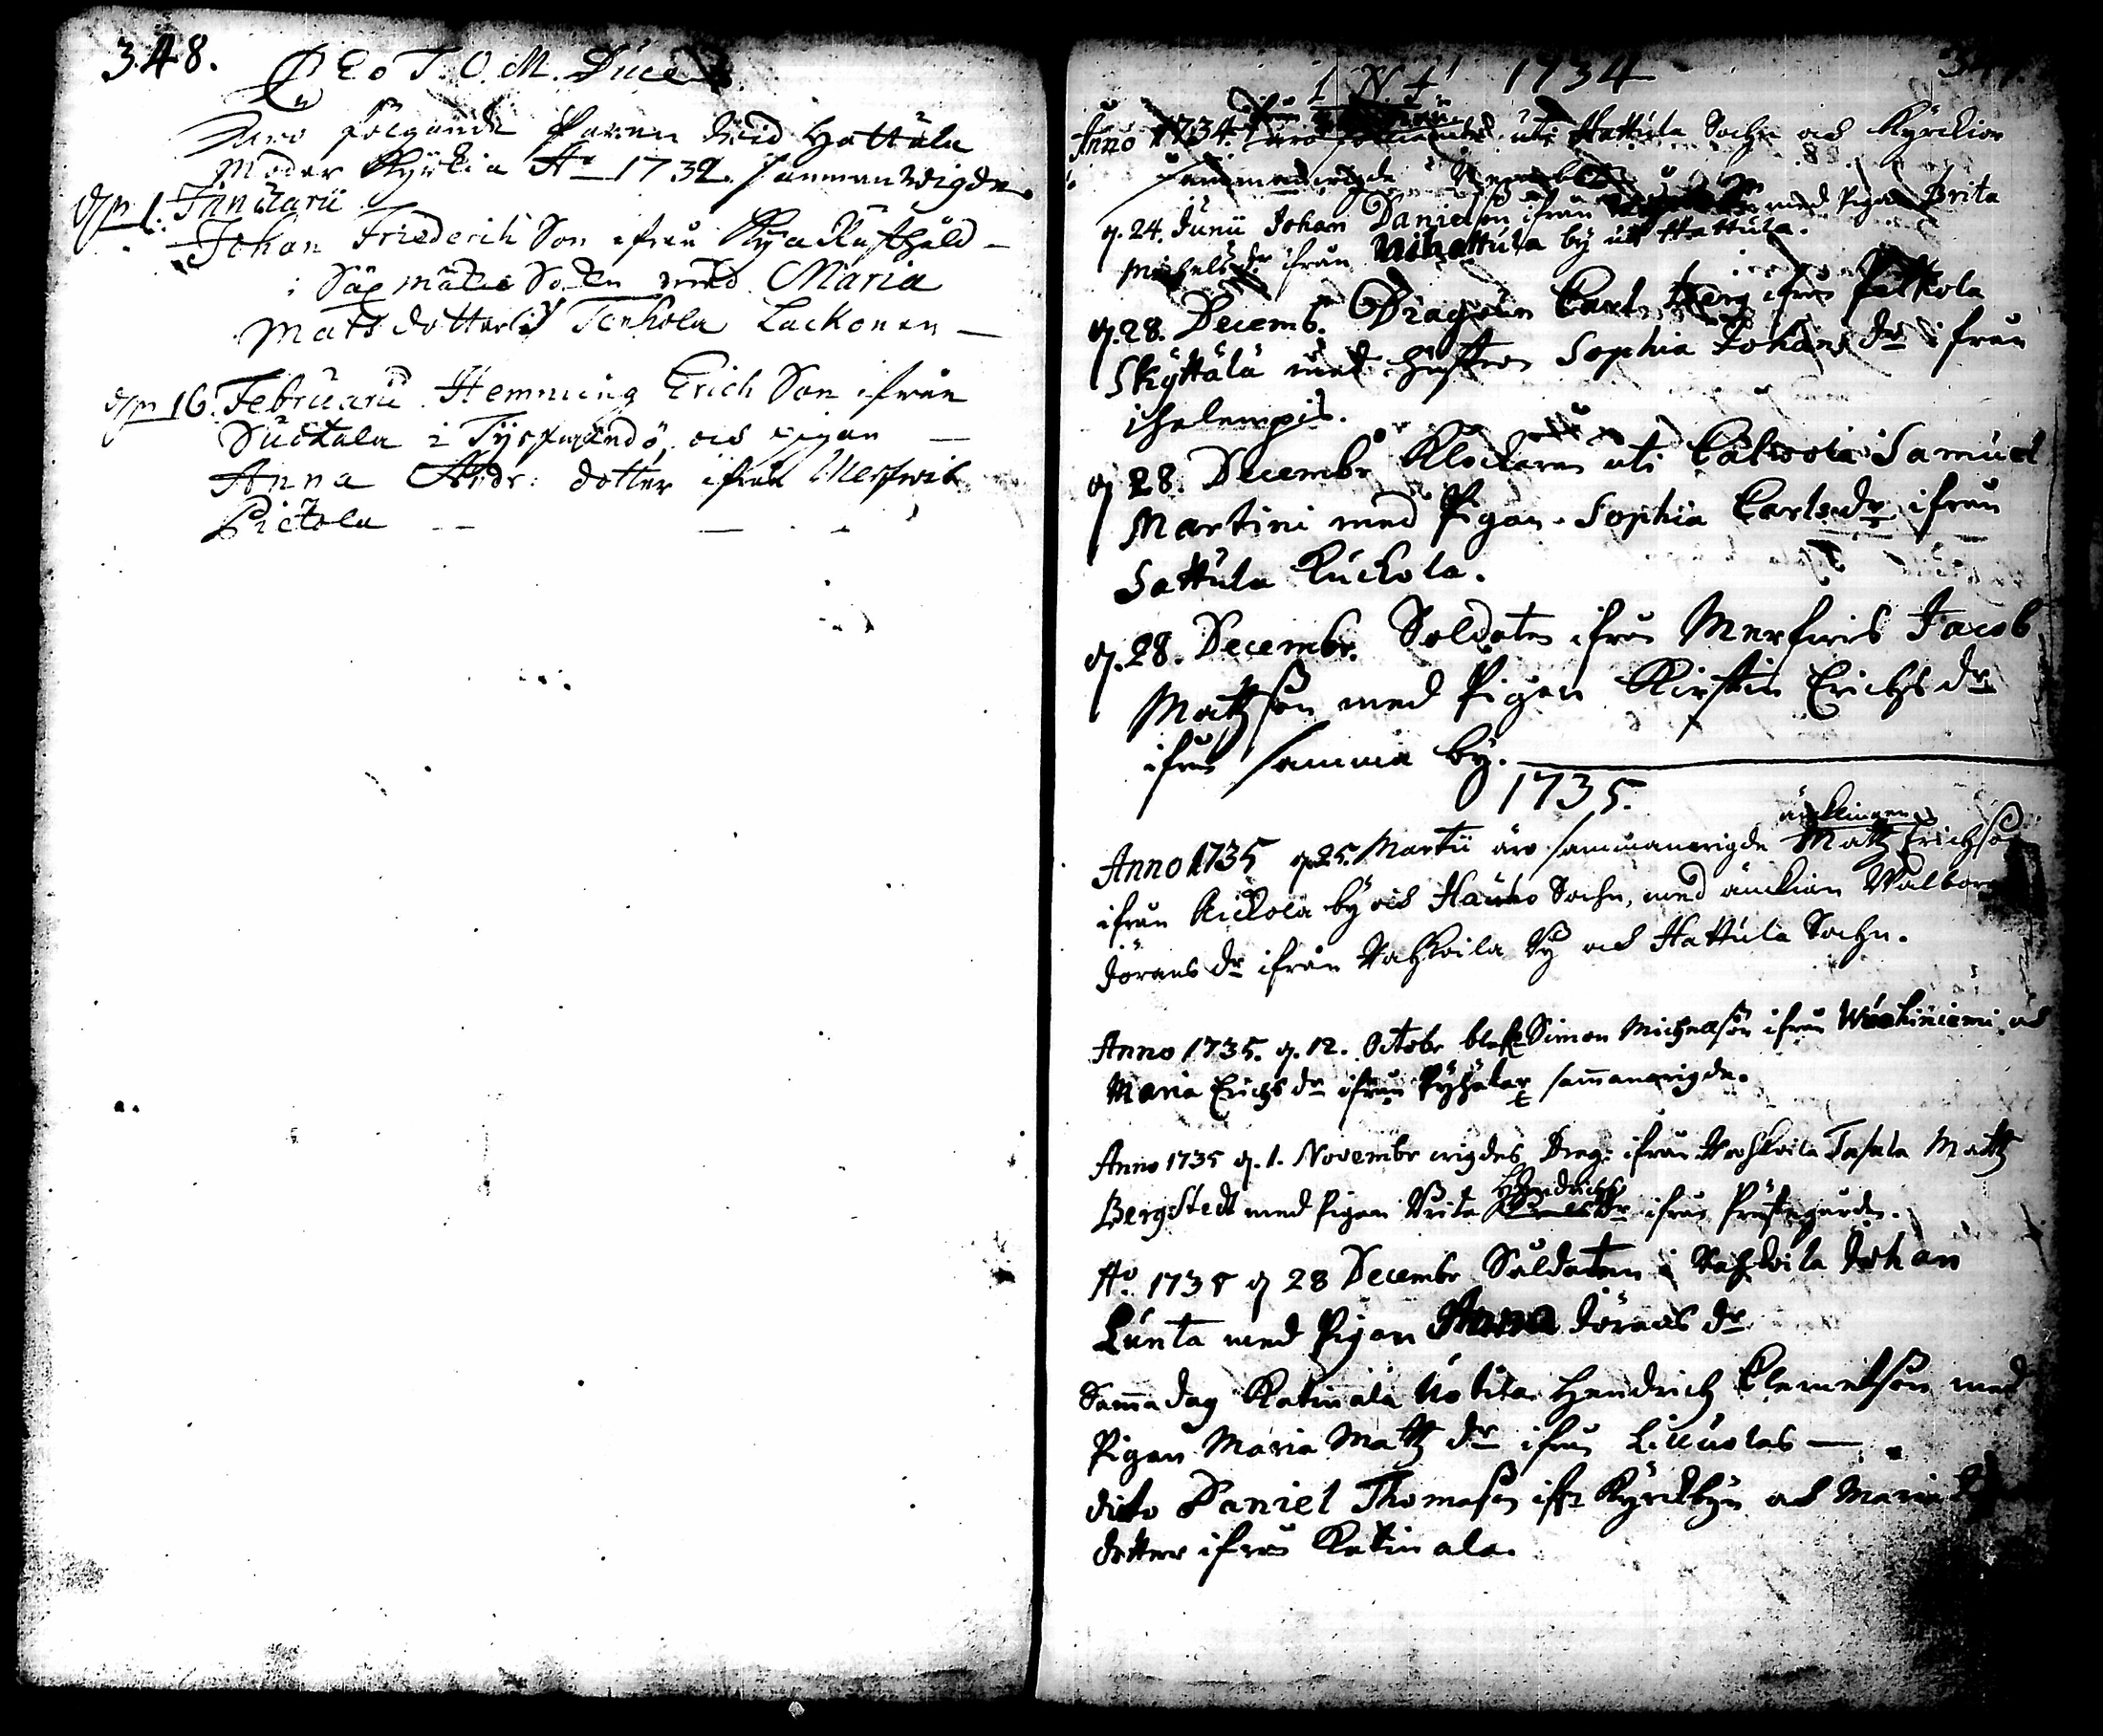 348.
Deo T. O. M. Duce
Äro følgande Paren wid Hattula
Moder Kyrkia Ao 1732. sammanwigde.
d/n 1. Januarii
Johan Friederich Son ifrån Kyla Rusthåld
i Säxmäki Sockn med Maria
Mats dotter Tenhola Lackonen
d/n 16. Februarii Hemming Erich Son ifrån
Suotala i Tyrfwändö, och pigan
Anna Andr: dotter ifrån Merfwis
Pietola
I N I 1734
Anno 1734. uti Hattula Sochn och Kyrckior
sammanwigde
d. 24. Junii Johan Danielson ifrån med Pigan Brita
Michels dr ifrån Nihattula by utj Hattula.
d. 28. Decemb. Dragoun Carl Berg ifrån Pelkola
Skyttälä med hustron Sophia Johans dr ifrån
Ihalempis.
d. 28. Decembr Klockaren uti Calvola Samuel
Martini med Pigan Sophia Carls dr ifrån
Sattula Kuckola.
d. 28. Decembr. Soldaten ifrån Merfwis Jacob
Mattzson med Pigan Kirstin Erichs dr
ifrån samma by.
1735.
änklingen
Anno 1735 d. 25. Martii äro sammanwigde Mattz Erichson
ifrån Kickola by och Hauho Sochn, med änckian Walborg
Jörans dr ifrån Wahkoila by och Hattula Sochn.
Anno 1735. d. 12. Octobr blef Simon Michellson ifrån Wuohiniemi och
Maria Erichs dr ifrån sammanwigde.
Anno 1735 d. 1. Novembr wigdes Drag: ifrån Wahkoila Mattz
Hendrichs
Bergstedt med Pigan Brita dr ifrån Prästegården.
Ao. 1735 d 28 Decembr Soldaten i Wahkoila Johan
Lunta med Pigan Anna Jörans dr
Samma dag Katinala Uotila Hendrich Clemetson med
Pigan Maria Mattz dr ifrån
dito Daniel Thomason ifr Kyrckbyn och Maria
dotter ifrån Katinala.